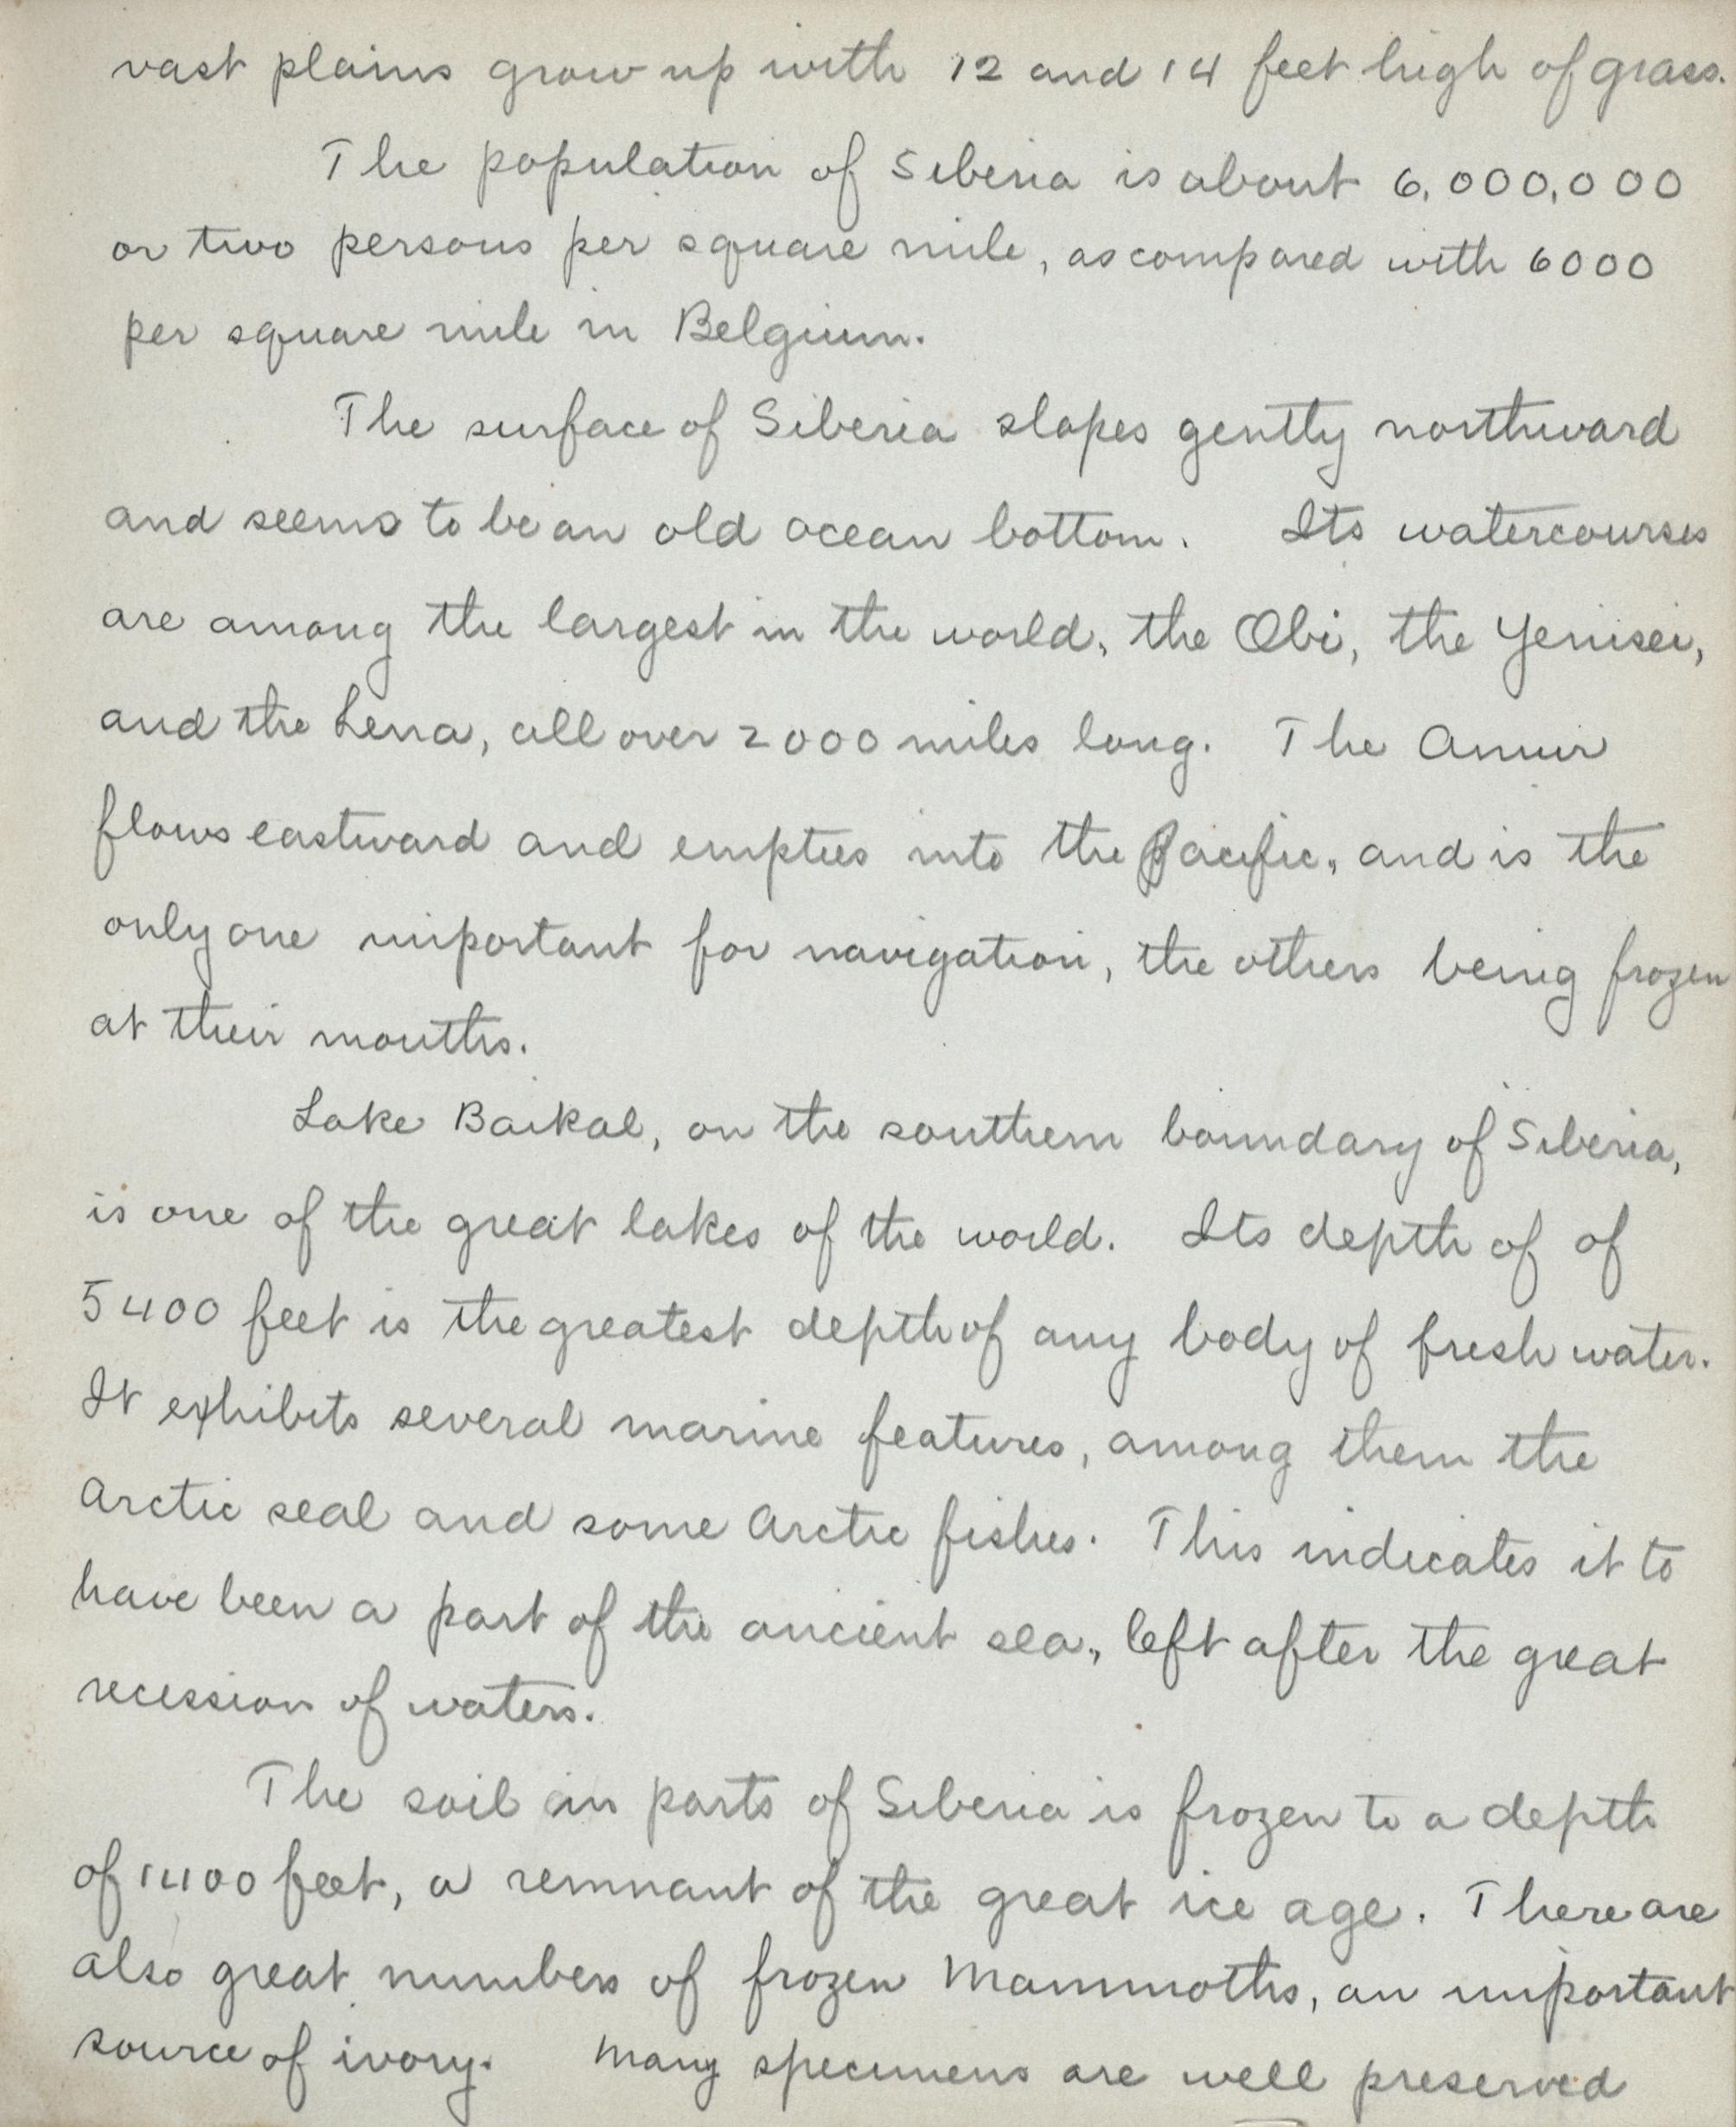 vast plains grow up with 12 and 14 feet high of grass.
The population of Siberia is about 6,000,000
or two persons per square mile, as compared with 6000
per square mile in Belgium.
The surface of Siberia slopes gently northward
and seems to be an old ocean bottom. Its watercourses
are among the largest in the world, the Obi, the Yenisei,
and the Lena, all over 2000 miles long. The Amur
flows eastward and empties into the Pacific, and is the
only one important for navigation, the others being frozen
at their mouths.
Lake Baikal, on the southern boundary of Siberia,
is one of the great lakes of the world. Its depth of of
5400 feet is the greatest depth of any body of fresh water.
It exhibits several marine features, among them the
Arctic seal and some Arctic fishes. This indicates it to
have been a part of the ancient sea, left after the great
recession of waters.
The soil in parts of Siberia is frozen to a depth
of 1400 feet, a remnant of the great ice age. There are
also great numbers of frozen Mammoths, an important
source of ivory. Many specimens are well preserved